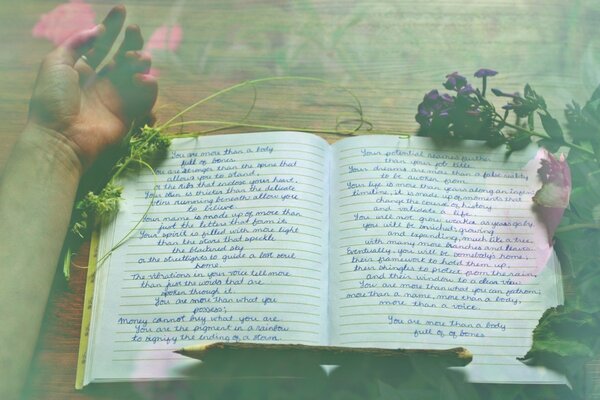 You are more than a body
full of bones.
You are stronger than the spine that
allows you to stand,
or the ribs that endose your heart.
Your skin is thicker than the delicate
veins running beneath allow you
to believe.
Your name is made up of more than
just the letters that form it.
Your spirit is filled with more light
than the stars that speckle
the blackened sky
or the streetlights to guide a lost soul
home.
The vibrations in your voice tell more
than just the words that are
spoken through it.
You are more than what you
possess;
Money cannot buy what you are.
You are the pigment in a rainbow
to signify the ending of a storm.
Your potential reaches further
than your feet.
Your dreams are more than a false reality
to be asleep for.
Your life is more than years along an ongoing
timeline, it is made up of moments that
change the course of history
and validate a life.
You will not grow weaker as years go by,
you will be enriched; growing
and expanding, much like a tree,
with many more branches and leaves.
Eventually, you will be somebody's home,
their framework to hold them up,
their shingles to protect from the rain,
and their window to a clear day.
You are more than what you can fathom;
more than a name, more than a body,
more than a voice.
You are more than a body
full of of bones